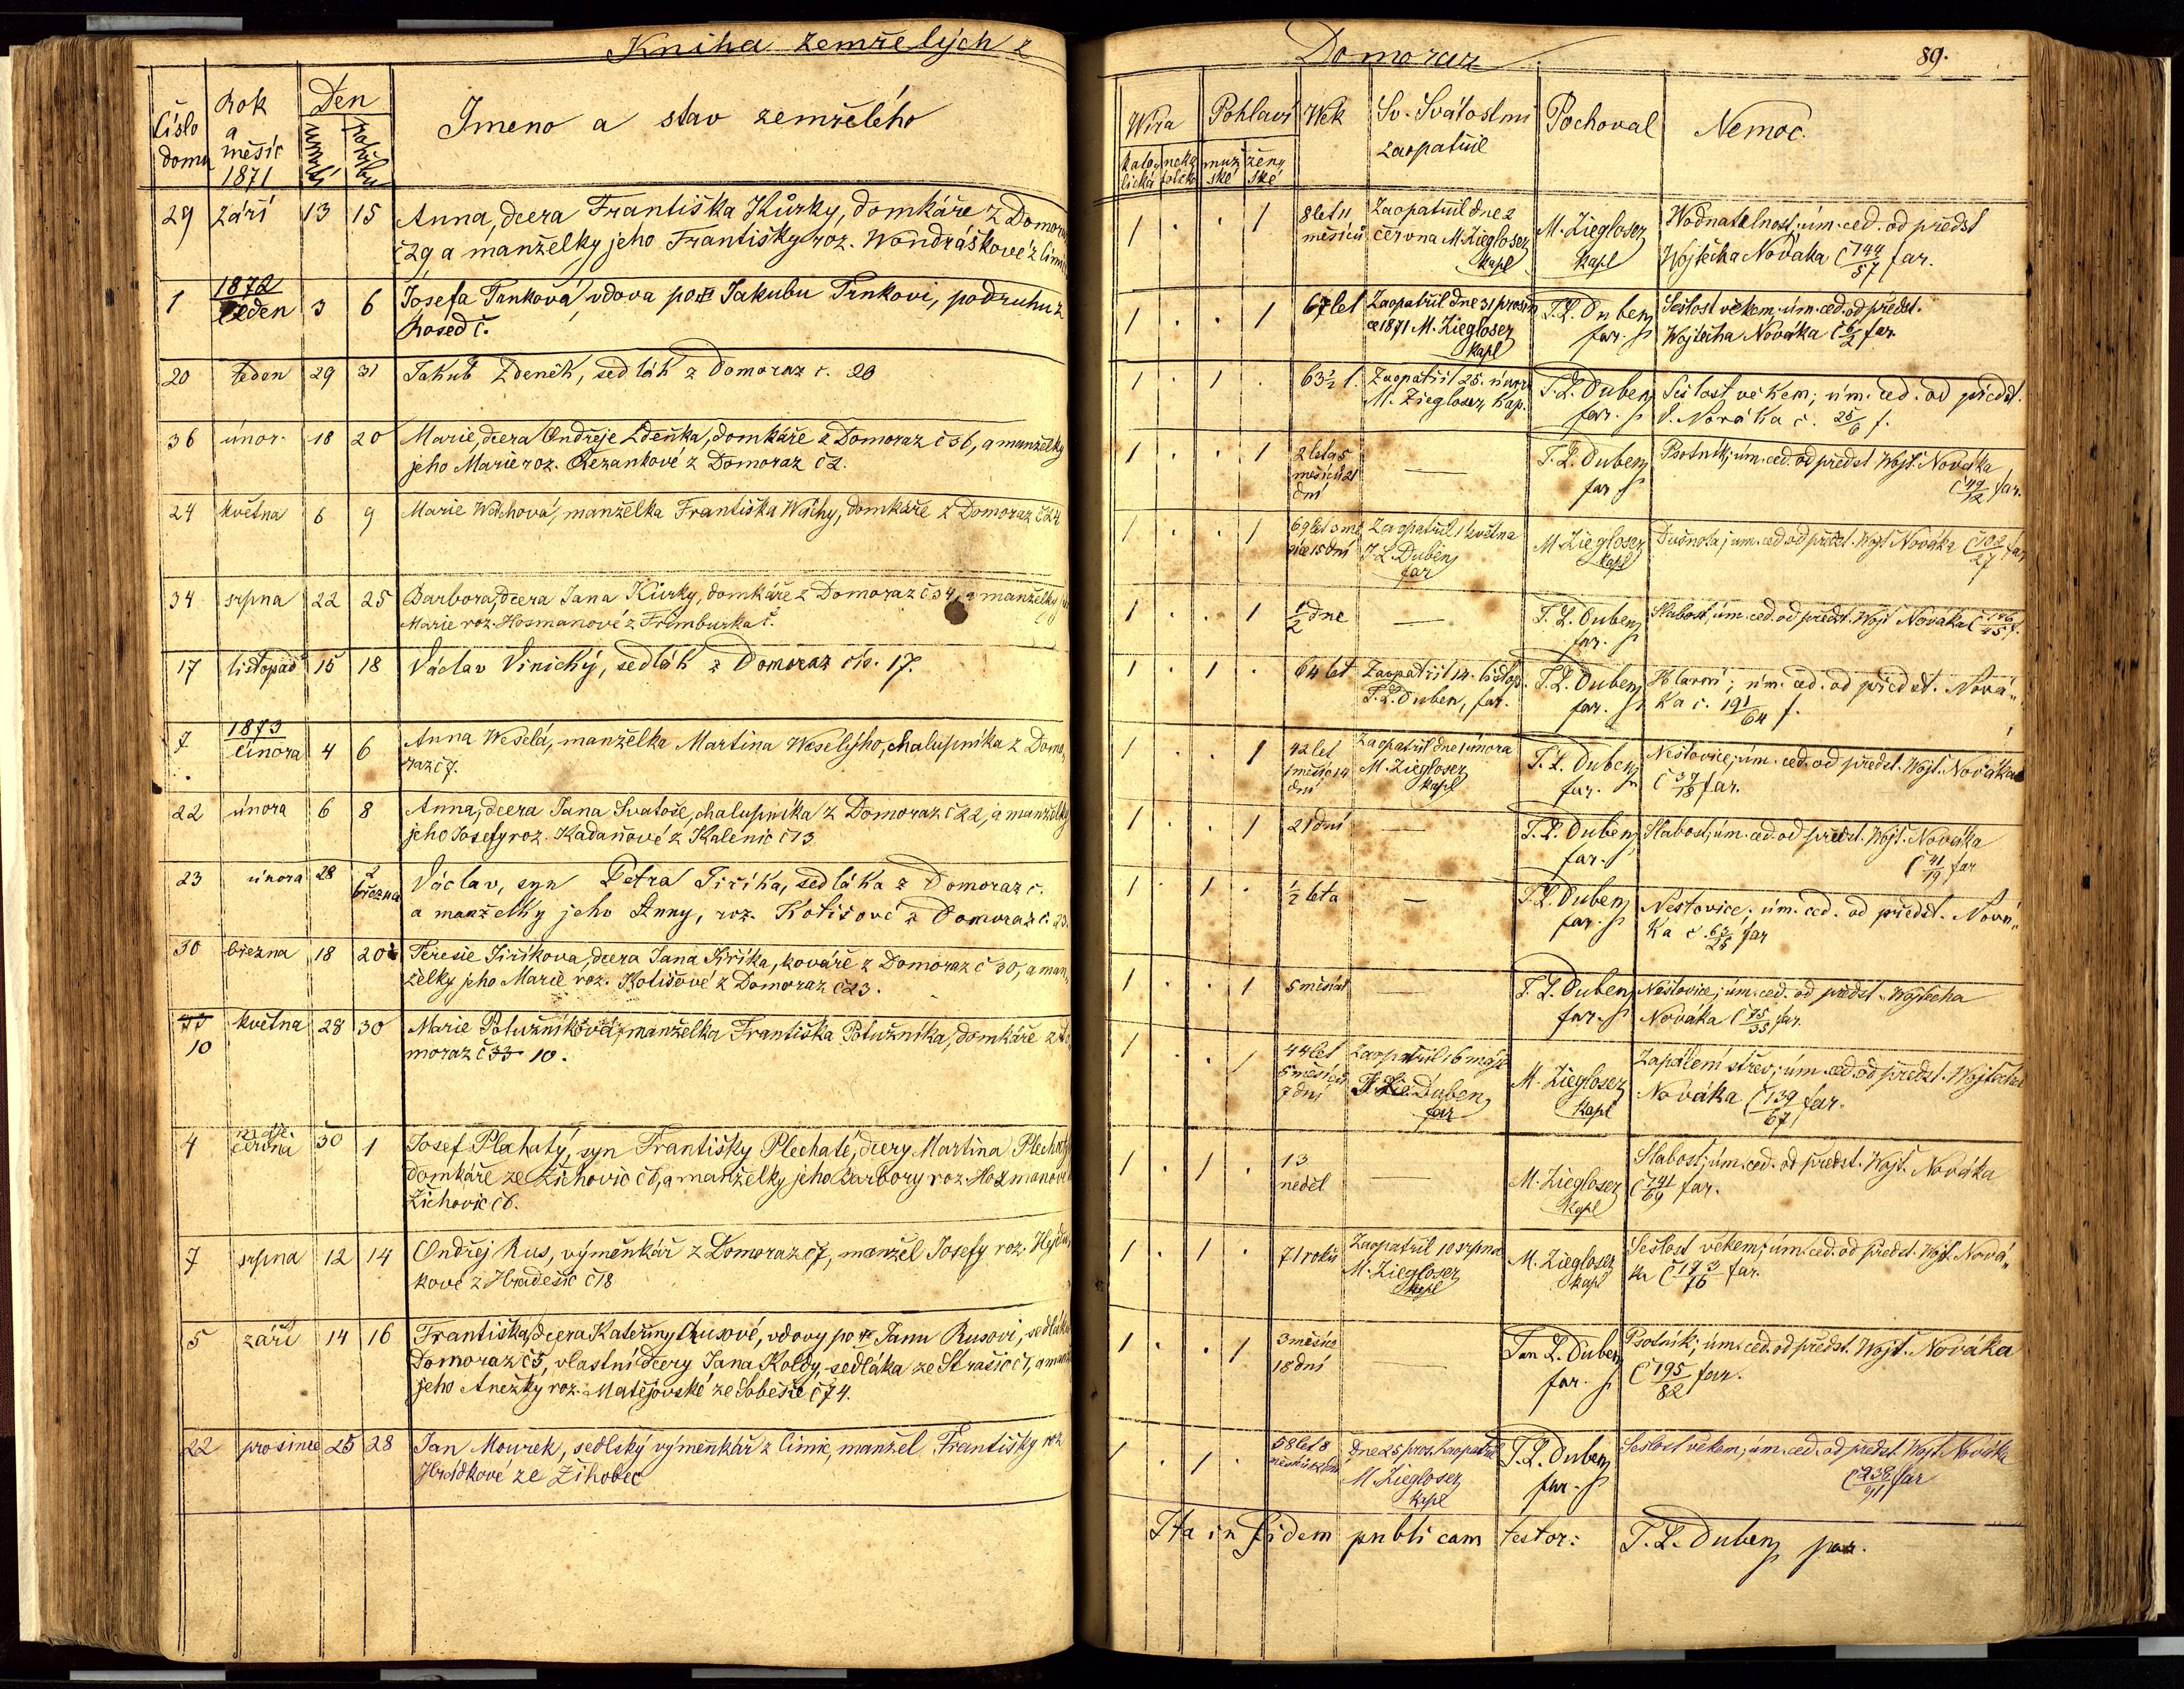 Kniha zemřelých z
Domoraz
89.
číslo domu
Rok a měsíc 1871
Den
úmrtí
pohřbu
Jmeno a stav zemřelého
Wíra
katolická
nekatolická
Pohlaví
mužské
ženské
Wěk
Sv. Svátostmi zaopatřil
Pochoval
Nemoc.
29 září 13 15 Anna, dcera Františka Kůrky, domkáře z Domoraz
č 29 a manželky jeho Františky roz. Wondráškové z Čimic
1 . . 1
8 let 11
měsíců
Zaopatřil dne 2
června M. Ziegloser
kapl
M. Ziegloser
kapl
Wodnatelnost; úm. ced. od předst
Wojtěcha Nováka č 144/57 far.
1872
1 leden 3 6 Josefa Trnková, vdova po Jakubu Trnkovi, podruhu z
Rosed č.
1 . . 1
67 let
Zaopatřil dne 31 prosin
ce 1871 M. Ziegloser
kapl
J. L. Duben
far.
Sešlost věkem; úm. ced. od předst.
Wojtěcha Nováka č 6/2 far
20 leden 29 31 Jakub Zdeněk, sedlák z Domoraz č. 20
1 . 1 .
63 ½ l.
Zaopatřil 25. února
M. Ziegloser kap.
J. L. Duben
far.
Sešlost věkem; úm. ced. od předst.
V. Nováka č. 25/6 f.
36 únor. 18 20 Marie, dcera Ondřeje Zdeňka, domkáře z Domoraz č 36, a manželky
jeho Marie roz. Řezankové z Domoraz č 2.
1 . . 1
2 leta 5
měsíců 21
dní
—
J. L. Duben
far
Psotník; úm. ced. od předst Wojt. Nováka
č 49/12 far.
24 května 6 9 Marie Wáchová, manželka Františka Wáchy, domkáře z Domoraz č 24
1 . . 1
69 let 3 mě
síce 15 dní
Zaopatřil 1 května
J L Duben
far
M Ziegloser
kapl
Dušnota; úm. ced od předst. Wojt Nováka č 102/27 far
34 srpna 22 25 Barbora, dcera Jana Kůrky, domkáře z Domoraz č 34, a manželky
Marie roz. Hosmanové z Frimburka č.
1 . . 1
½ dne
—
J. L. Duben
far.
Slabost, úm. ced. od předst. Wojt Nováka č 146/45 f.
17 listopad 15 18 Václav Vinický, sedlák z Domoraz č. 17.
1 . 1 .
64 let
Zaopatřil 14. listop.
J. L. Duben, far.
J. L. Duben
far.
úm. ced. od předst. Nová„
ka č. 191/64 f.
1873
7 února 4 6 Anna Weselá, manželka Martina Weselýho, chalupníka z Domo„
raz č 7.
1 . . 1
42 let
1 měsíc 14
dní
Zaopatřil dne 1 února
M. Ziegloser
kapl
J. L. Duben
far.
Neštovice; úm. ced. od předst. Wojt. Nováka
č 39/18 far.
22 února 6 8 Anna, dcera Jana Svatoše, chalupníka z Domoraz č 22, a manželky
jeho Josefy roz. Kadaňové z Kalenic č 13
1 . . 1
21 dní
—
J. L. Duben
far.
Slabost; úm. ced. od předst. Wojt. Nováka
č 41/19 far
23 února 28 2 března Václav, syn Petra Jiříka, sedláka z Domoraz č.
a manželky jeho Anny, roz. Kotišové z Domoraz č. 23.
1 . 1 .
½ leta
—
J. L. Duben
far.
Neštovice; úm. ced. od předst. Nová„
ka č. 63/25 far
30 března 18 20 Teresie Jiříkova, dcera Jana Jiříka, kováře z Domoraz č 30, a man„
želky jeho Marie roz. Kotišové z Domoraz č 23.
1 . . 1
5 měsíců
—
J. L. Duben
far.
Neštovice; úm. ced. od předst. Wojtěcha
Nováka č 75/35 far.
10 května 28 30 Marie Potužníková, manželka Františka Potužníka, domkáře z Do
moraz č 33 10.
1 . . 1
44 let
5 měsíců
7 dní
Zaopatřil 16 máje
J. Duben
far
M. Ziegloser
kapl
Zapálení střev; úm. ced. od předst. Wojtěcha
Nováka č 139/67 far.
4 máje června 30 1 Josef Plechatý, syn Františky Plechaté, dcery Martina Plechatýho
domkáře ze Žichovic č 6, a manželky jeho Barbory roz. Hosmanové
Žichovic č 6.
1 . 1 .
13
neděl
—
M. Ziegloser
kapl
Slabost; úm. ced. od předst. Wojt. Nováka
č 141/69 far.
7 srpna 12 14 Ondřej Rus, výměnkář z Domoraz č 7, manžel Josefy roz.
kové z Hradešic č 18
1 . 1 .
71 roků
Zaopatřil 10 srpna
M. Ziegloser
kapl
M. Ziegloser
kapl
Sešlost věkem; úm. ced. od předst. Wojt. Nová„
ka č 173/76 far.
5 září 14 16 Františka, dcera Kateřiny Rusové, vdovy po Janu Rusovi, sedláku
Domoraz č 5, vlastní dcery Jana Koldy, sedláka ze Strašic č 1, a man
jeho Anežky roz. Matějovské ze Soběšic č 74.
1 . . 1
3 měsíce
18 dní
—
Jan L. Duben
far.
Psotník; úm. ced. od předst. Wojt. Nováka
č 195/82 far.
22 prosince 25 28 Jan Mourek, sedlský výměnkář z Čimic, manžel Františky roz
Hrádkové ze Žihobec
1 . 1 .
58 let 8
měsíců
dne 25 pros. zaopatřil
M. Ziegloser
kapl
J. L. Duben
far.
Sešlost věkem; úm. ced. od předst. Wojt. Nováka
č 238/91 far
Ita in fidem publicam testor: J. L. Duben par.